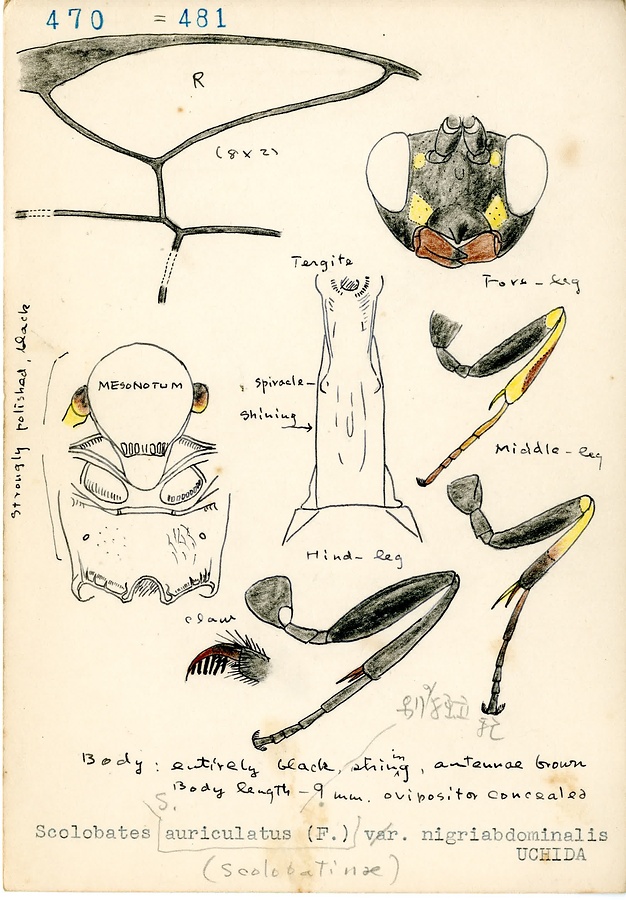 470 = 481
R
(8×2)
Tergite
Fore-leg
Strongly polished, black
MESONOTUM
spiracle
shining
Middle-leg
Hind-leg
claw
Body: entirely black, shining, antennae brown
Body length - 9 mm. ovipositor concealed
S.
Scolobates auriculatus (F.) var. nigriabdominalis
UCHIDA
(Scolobatinae)